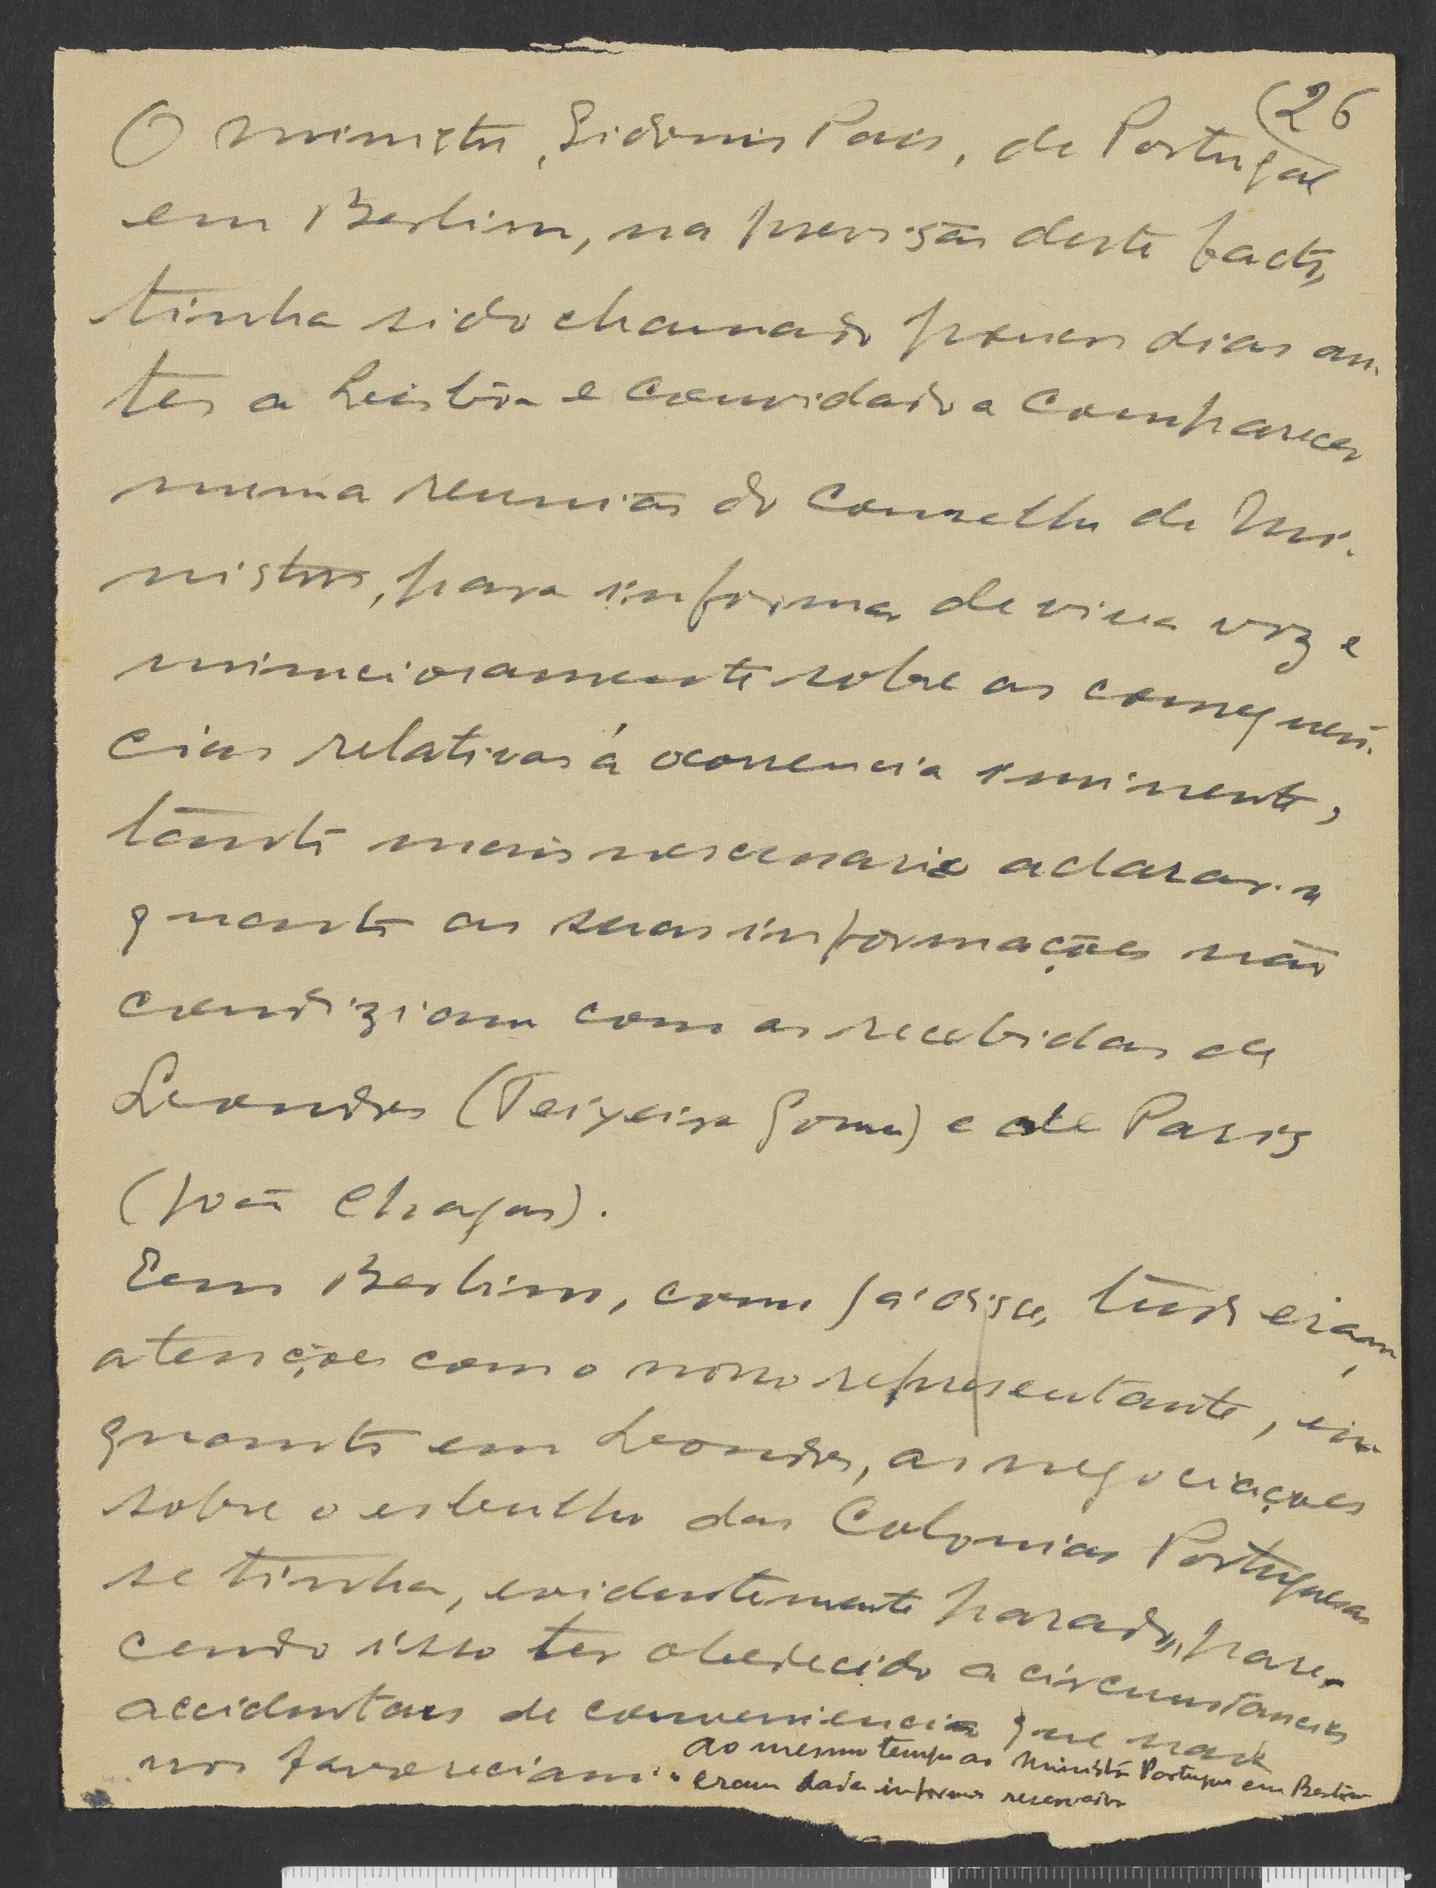 (26
O ministro, Sidonio Pais, de Portugal
em Berlim, na previsão deste facto,
tinha sido chamado poucos dias an-
tes a Lisbôa e convidado a comparecer
numa reunião do Conselho de Mi-
nistros, para informar de viva voz e
minuciosamente sobre as consequên-
cias relativas á ocorrencia iminente,
tanto mais necessario aclarar-se
quanto as suas informações não
condiziam com as recebidas de
Londres (Teixeira Gomes) e de Paris
(João Chagas).
Em Berlim, como já disse, tudo eram
atenções com o nosso representante, en-
quanto em Londres, as negociações
sobre o esbulho das Colonias Portuguesas
se tinha, evidentemente parado, pare-
cendo isso ter obedecido a circunstancias
accidentaes de conveniencia que nada
nos favoreciam.
Ao mesmo tempo ao Ministro Portugues em Berlim
eram dadas informes reservados